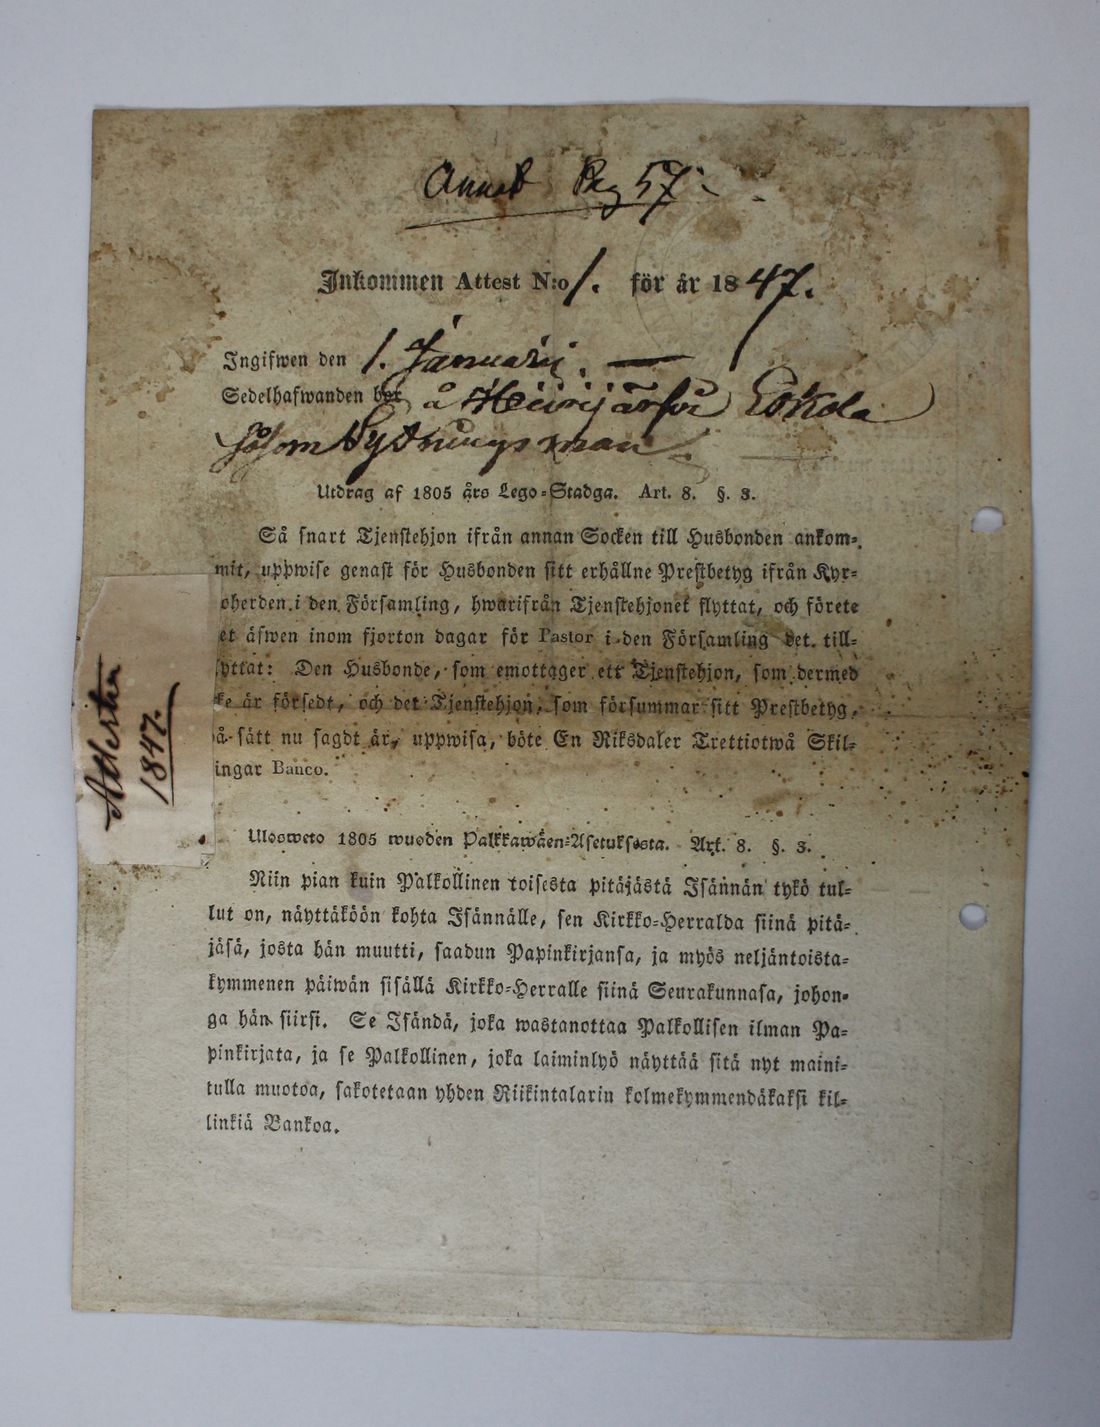 Annot Pag 57.
Inkommen Attest N:o 1. för år 1847.
Ingifwen den 1. Januarij.
Sedelhafwanden bor å Eskola
såsom Sytningsman.
Utdrag af 1805 års Lego-Stadga. Art. 8. §. 3.
Så snart Tjenstehjon ifrån annan Socken till Husbonden ankom-
mit, uppwise genast för Husbonden sitt erhållne Prestbetyg ifrån Kyr-
oherden i den Församling, hwarifrån Tjenstehjonet flyttat, och förete
et äfwen inom fjorton dagar för Pastor i den Församling det till-
yttat: Den Husbonde, som emottager ett Tjenstehjon, som dermed
ke är försedt, och det Tjenstehjon, som försummar sitt Prestbetyg,
å sätt nu sagdt är, uppwisa, böte En Riksdaler Trettiotwå Skil-
ingar Banco.
Attester
1847.
Ulosweto 1805 wuoden Palkkawäen-Asetuksesta. Art. 8. §. 3.
Niin pian kuin Palkollinen toisesta pitäjästä Isännän tykö tul-
lut on, näyttäköön kohta Isännälle, sen Kirkko-Herralda siinä pitä-
jäsä, josta hän muutti, saadun Papinkirjansa, ja myös neljäntoista-
kymmenen päiwän sisällä Kirkko-Herralle siinä Seurakunnasa, johon-
ga hän siirsi. Se Isändä, joka wastanottaa Palkollisen ilman Pa-
pinkirjata, ja se Palkollinen, joka laiminlyö näyttää sitä nyt maini-
tulla muotoa, sakotetaan yhden Riikintalarin kolmekymmendäkaksi kil-
linkiä Bankoa.